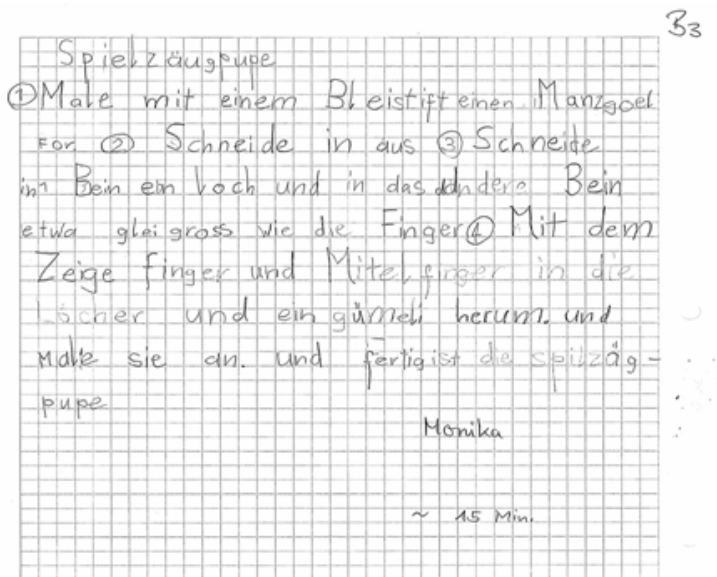 B3
Spielzäugpupe
① Male mit einem Bleistift einen Manzgoel
For ② Schneide in aus ③ Schneide
in Bein ein Loch und in das andere Bein
etwa gleigross wie die Finger ④ Mit dem
Zeige finger und Mitelfinger in die
Löcher und ein gümeli herum. und
Malle sie an. und fertig ist die spilzäg-
pupe
Monika
~ 15 Min.